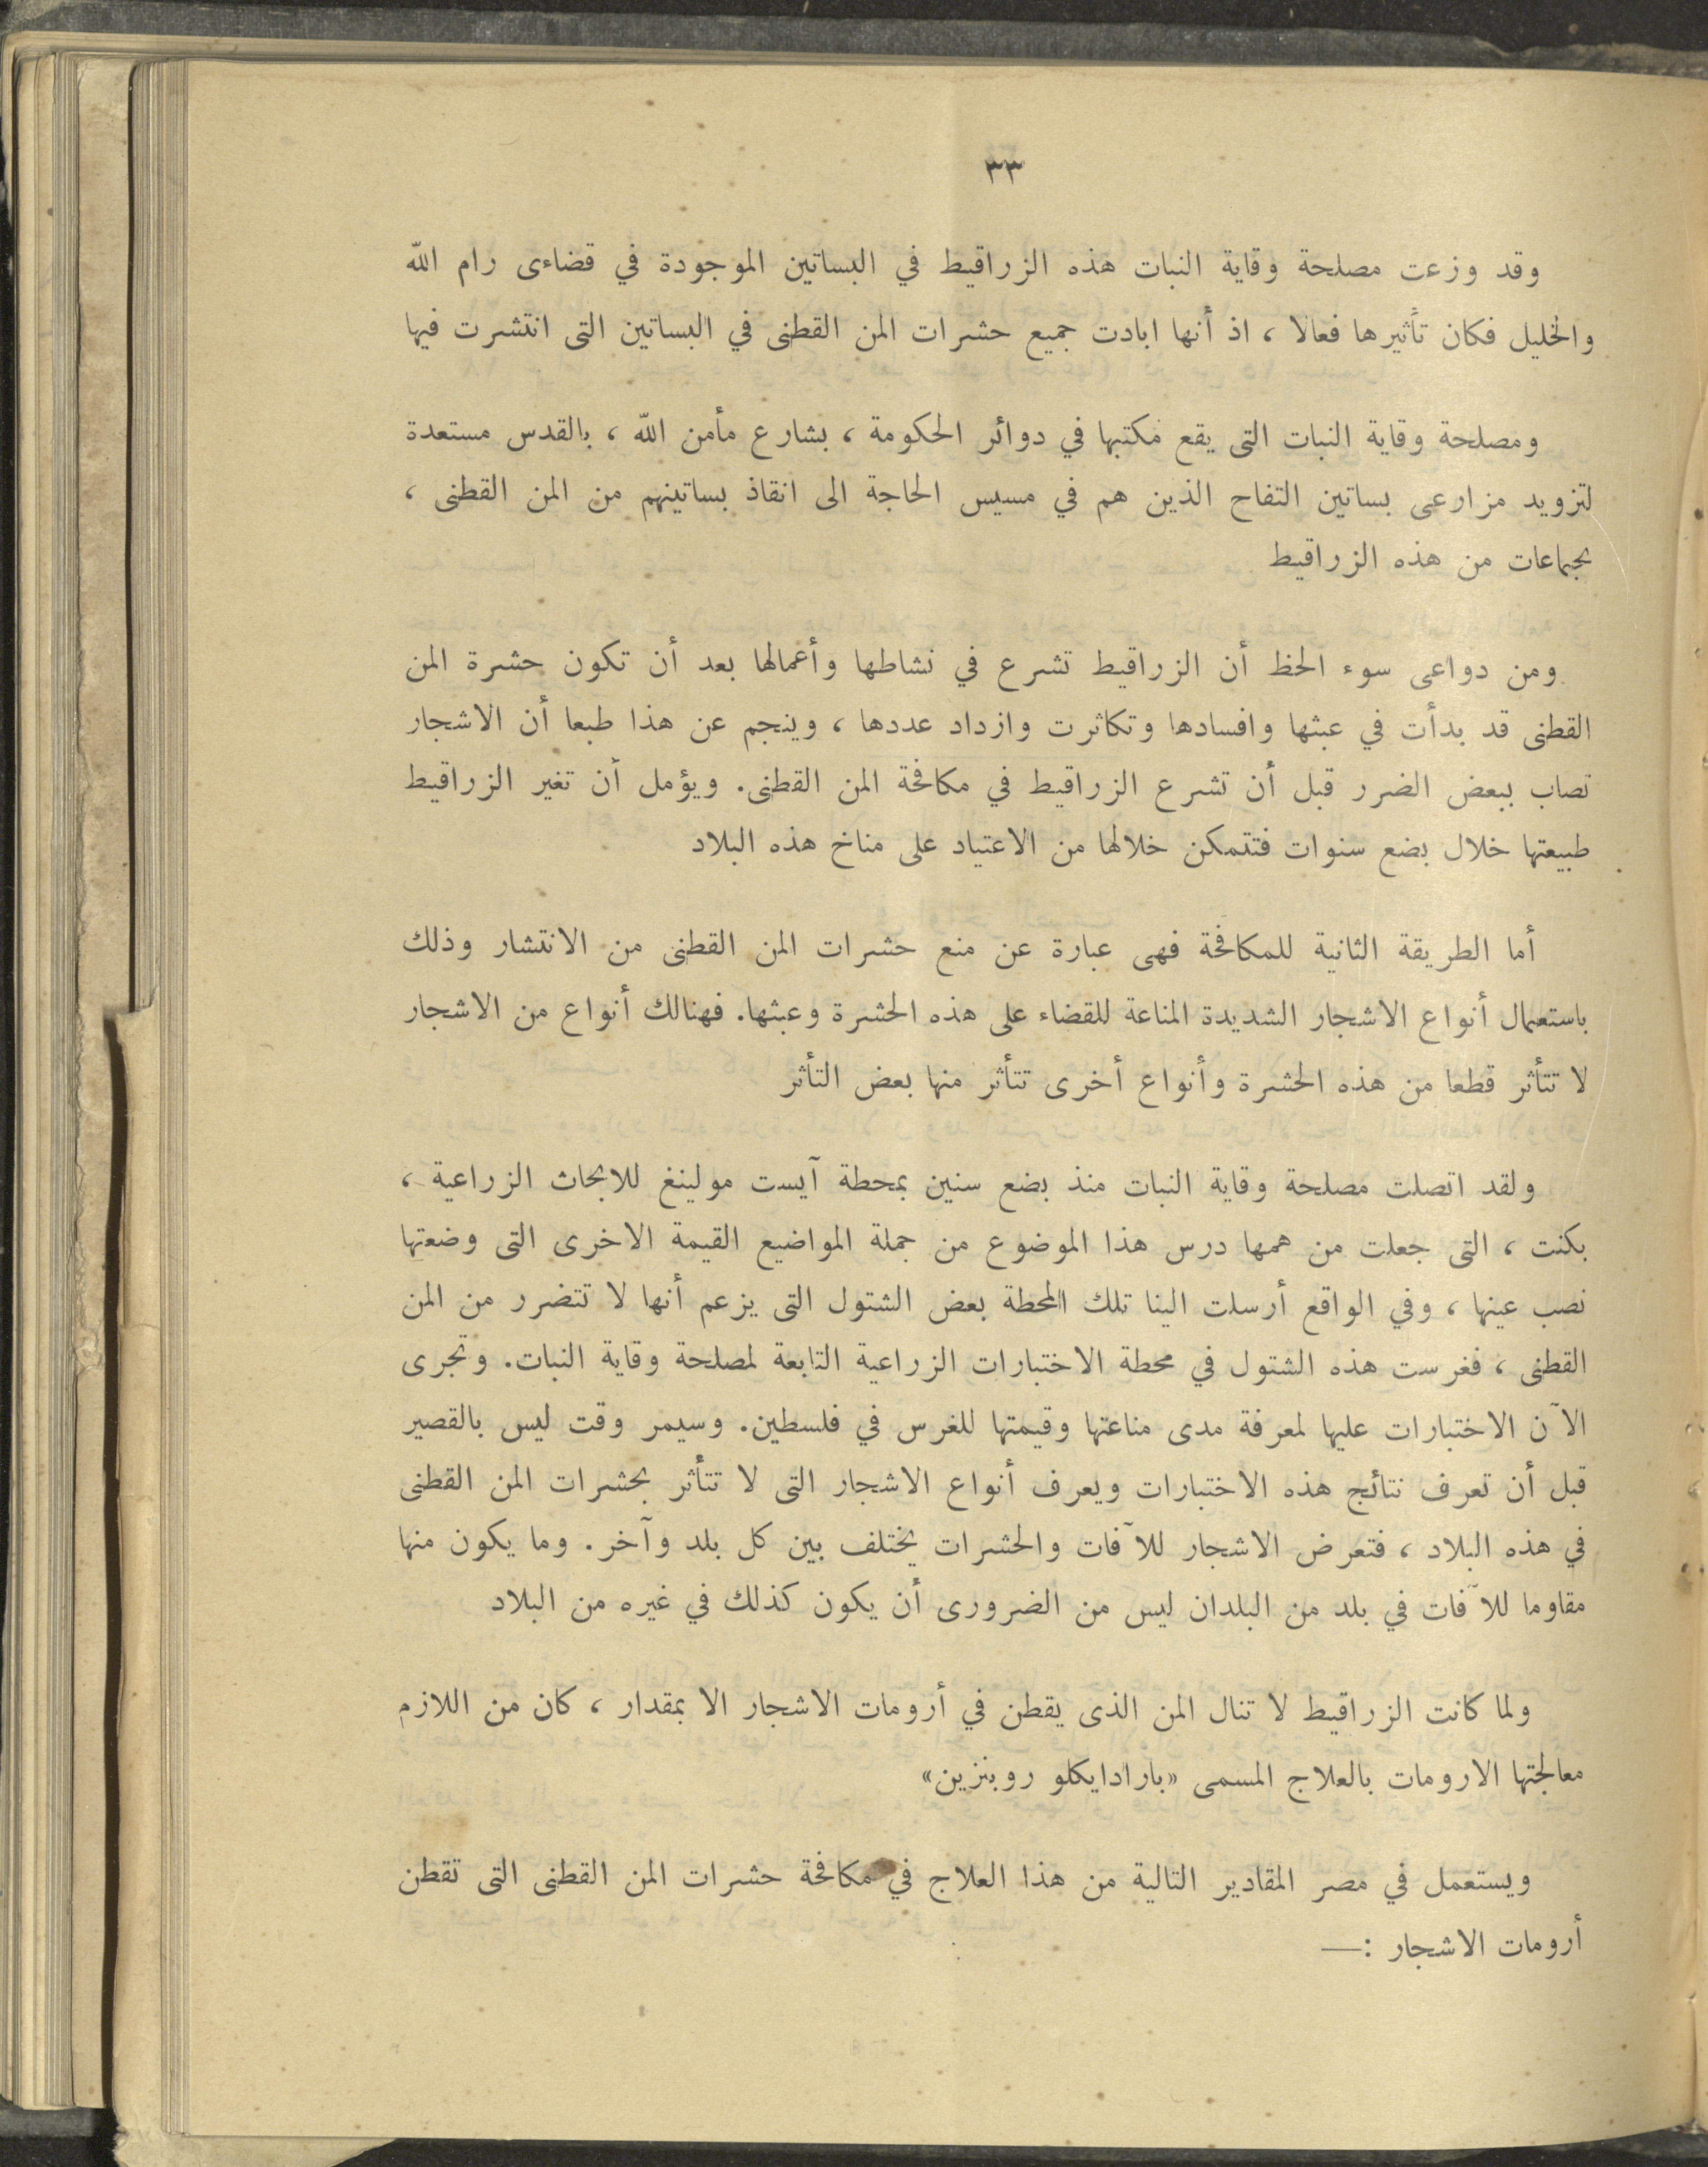 ٣٣
وقد وزعت مصلحة وقاية النبات هذه الزراقيط في البساتين الموجودة في قضاءى رام الله
والخليل فكان تأثيرها فعالا ، اذ أنها ابادت جميع حشرات المن القطنى في البساتين التى انتشرت فيها
ومصلحة وقاية النبات التى يقع مكتبها في دوائر الحكومة ، بشارع مأمن الله ، بالقدس مستعدة
لتزويد مزارعى بساتين التفاح الذين هم في مسيس الحاجة الى انقاذ بساتينهم من المن القطنى ،
بجماعات من هذه الزراقيط
ومن دواعى سوء الحظ أن الزراقيط تشرع في نشاطها وأعمالها بعد أن تكون حشرة المن
القطنى قد بدأت في عبثها وافسادها وتكاثرت وازداد عددها ، وينجم عن هذا طبعا أن الاشجار
تصاب ببعض الضرر قبل أن تشرع الزراقيط في مكافحة المن القطنى. ويؤمل أن تغير الزراقيط
طبيعتها خلال بضع سنوات فتتمكن خلالها من الاعتياد على مناخ هذه البلاد
أما الطريقة الثانية للمكافحة فهى عبارة عن منع حشرات المن القطنى من الانتشار وذلك
باستعمال أنواع الاشجار الشديدة المناعة للقضاء على هذه الحشرة وعبثها. فهنالك أنواع من الاشجار
لا تتأثر قطعا من هذه الحشرة وأنواع أخرى تتأثر منها بعض التأثر
ولقد اتصلت مصلحة وقاية النبات منذ بضع سنين بمحطة آيست مولينغ للابحاث الزراعية ،
بكنت ، التى جعلت من همها درس هذا الموضوع من جملة المواضيع القيمة الاخرى التى وضعتها
نصب عينها ، وفي الواقع أرسلت الينا تلك المحطة بعض الشتول التى يزعم أنها لا تتضرر من المن
القطنى ، فغرست هذه الشتول في محطة الاختبارات الزراعية التابعة لمصلحة وقاية النبات. وتجرى
الآن الاختبارات عليها لمعرفة مدى مناعتها وقيمتها للغرس في فلسطين. وسيمر وقت ليس بالقصير
قبل أن تعرف نتائج هذه الاختبارات ويعرف أنواع الاشجار التى لا تتأثر بحشرات المن القطنى
في هذه البلاد ، فتعرض الاشجار للآفات والحشرات يختلف بين كل بلد وآخر. وما يكون منها
مقاوما للآفات في بلد من البلدان ليس من الضرورى أن يكون كذلك في غيره من البلاد
ولما كانت الزراقيط لا تنال المن الذى يقطن في أرومات الاشجار الا بمقدار ، كان من اللازم
معالجتها الارومات بالعلاج المسمى «بارادايكلو روبنزين»
ويستعمل في مصر المقادير التالية من هذا العلاج في مكافحة حشرات المن القطنى التى تقطن
أرومات الاشجار :—